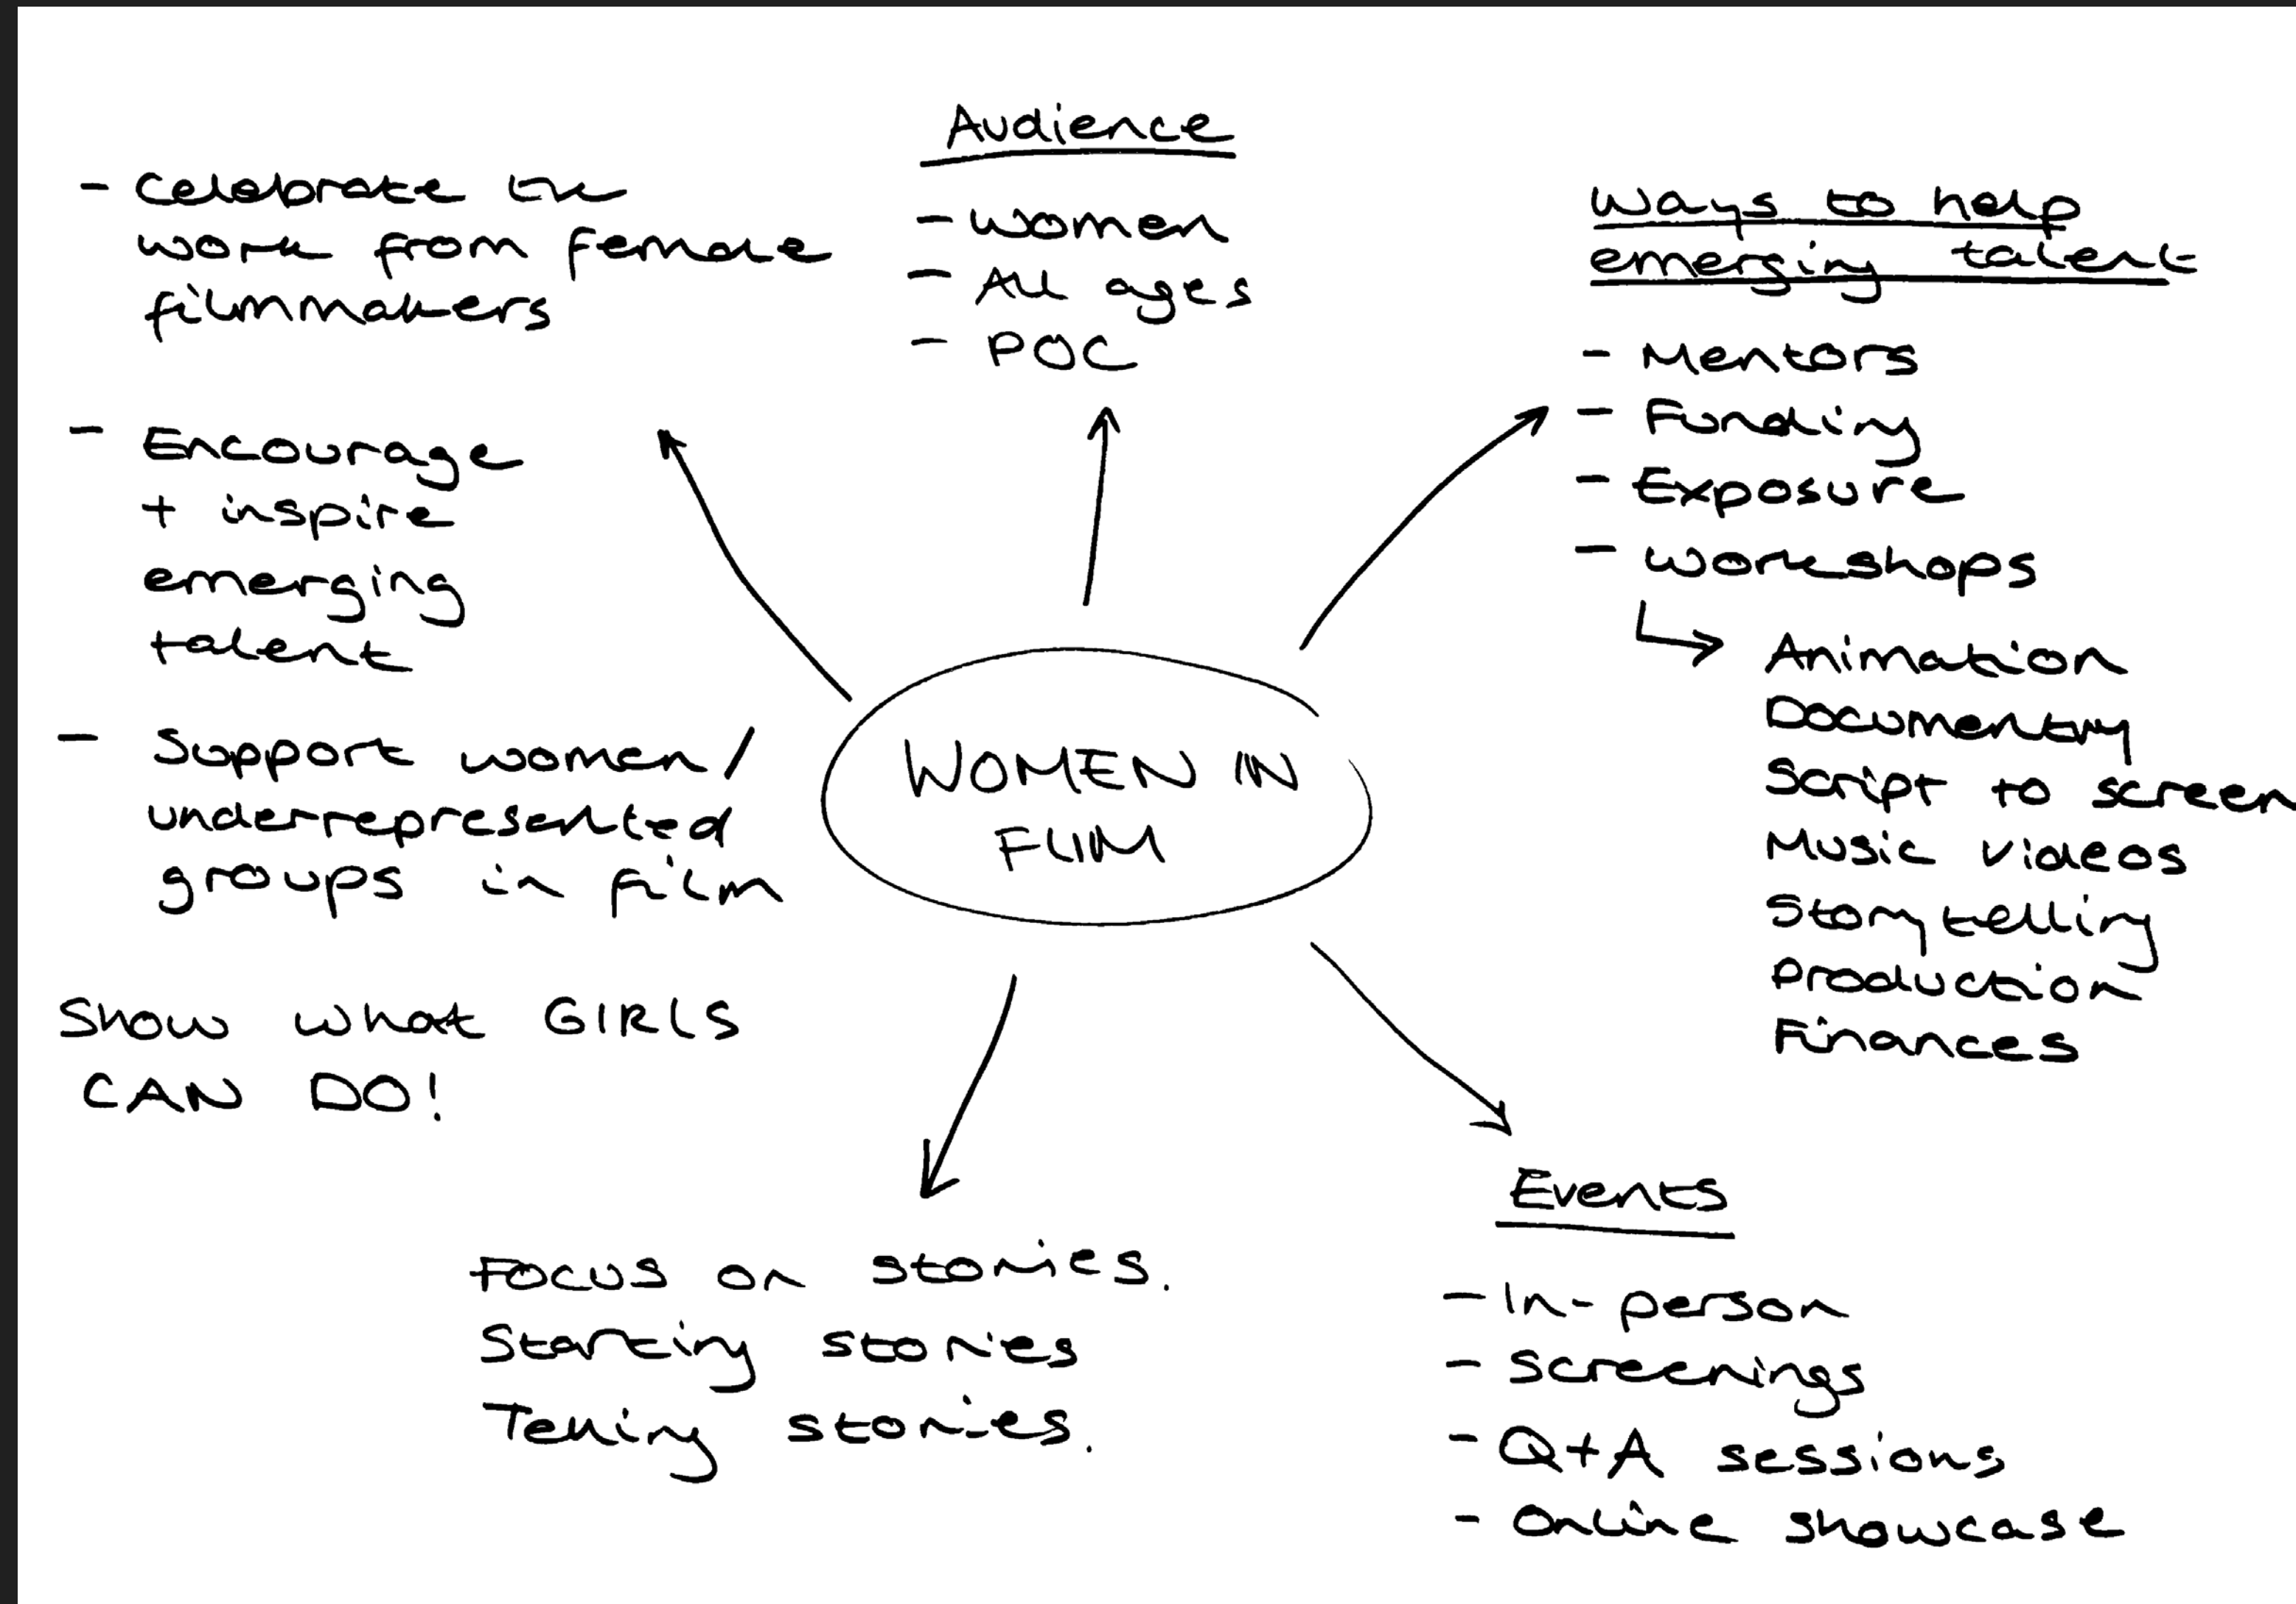 Audience
- women
- All ages
- POC
- Celebrate the
work from female
filmmakers
- Encourage
+ inspire
emerging
talent
- Support women/
underrepresented
groups in film
Show what GIRLS
CAN DO!
Ways to help
emerging talent
- Mentors
- Funding
- Exposure
- Workshops
Animation
Documentary
Script to screen
Music videos
Storytelling
Production
Finances
WOMEN IN
FLIM
Focus on stories.
Starting stories
Telling stories.
Events
- In-person
- Screenings
- Q+A sessions
- Online showcase